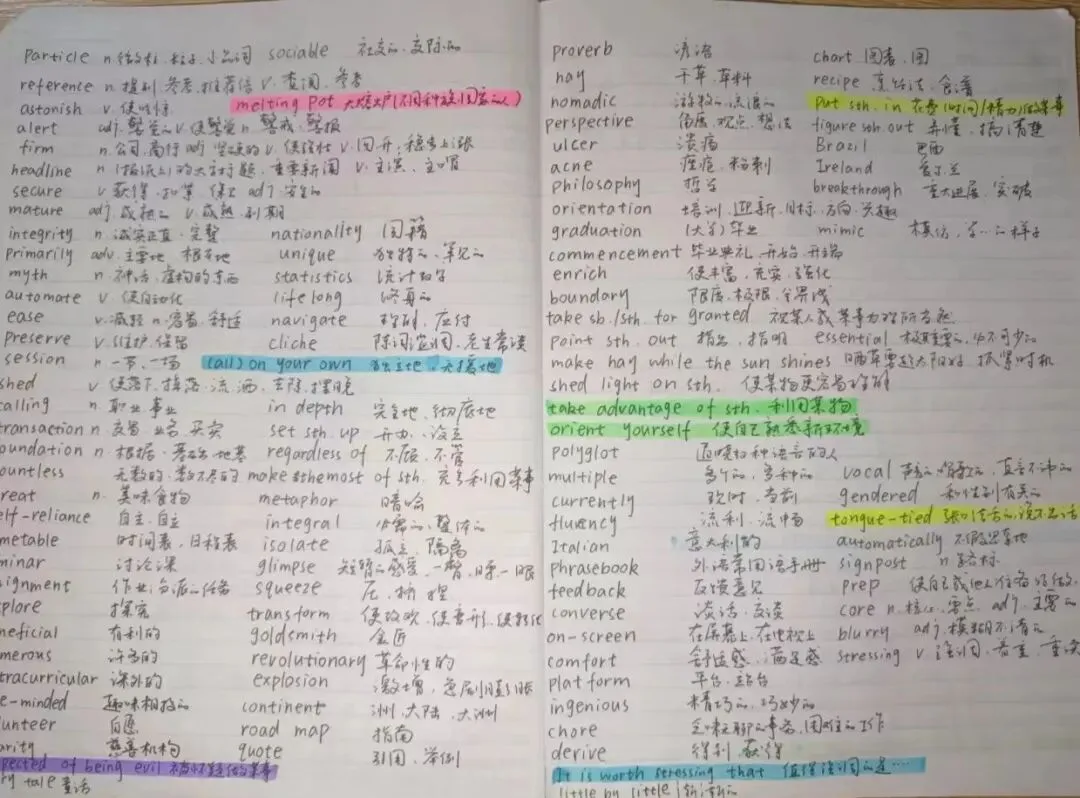 particle n.微粒.粒子.小品词 sociable 社交的.交际的
reference n.提到.参考.推荐信 v.查阅.参考
astonish v.使吃惊 melting pot 大熔炉(不同种族国家的人)
alert adj.警觉的 v.使警觉 n.警戒.警报
firm n.公司.商行 adj.坚硬的 v.使强壮 v.回升.稳步上涨
headline n.(报纸上的)大字标题.重要新闻 v.主演.主唱
secure v.获得.扣紧.保卫 adj.安全的
mature adj.成熟的 v.成熟.到期
integrity n.诚实正直.完整 nationality 国籍
primarily adv.主要地.根本地 unique 独特的.罕见的
myth n.神话.虚构的东西 statistics 统计数字
automate v.使自动化 lifelong 终身的
ease v.减轻 n.容易.舒适 navigate 找到.应付
preserve v.维护.保留 cliche 陈词滥调.老生常谈
session n.一节、一场 (all) on your own 独立地.无援地
shed v.使落下.掉落.流.洒.去除.摆脱
calling n.职业.事业 in depth 完全地.彻底地
transaction n.交易.业务.买卖 set sth. up 开办.设立
oundation n.根据.基础.地基 regardless of 不顾.不管
ountless 无数的.数不尽的 make sthemost of sth. 充分利用某事
reat n.美味食物 metaphor 暗喻
elf-reliance 自主.自立 integral 必需的.整体的
metable 时间表.日程表 isolate 孤立.隔离
minar 讨论课 glimpse 短暂的感受.一瞥.瞟一眼
signment 作业.分派的任务 squeeze 压.挤.捏
xplore 探究 transform 使改观.使变形.使转化
neficial 有利的 goldsmith 金匠
merous 许多的 revolutionary 革命性的
tracurricular 课外的 explosion 激增.急剧膨胀
e-minded 志趣相投的 continent 洲.大陆.大洲
unteer 自愿 road map 指南
arity 慈善机构 quote 引用.举例
pected of being evil 被怀疑做某事
ry tale 童话
proverb 谚语 chart 图表.图
hay 干草.草料 recipe 烹饪法.食谱
nomadic 游牧的.流浪的 put sth. in 花费(时间/精力)做某事
perspective 角度.观点.想法 figure sth. out 弄懂.搞清楚
ulcer 溃疡 Brazil 巴西
acne 痤疮.粉刺 Ireland 爱尔兰
philosophy 哲学 breakthrough 重大进展.突破
orientation 培训.迎新.目标.方向.兴趣
graduation (大学)毕业 mimic 模仿.学…的样子
commencement 毕业典礼.开始.开端
enrich 使丰富.充实.强化
boundary 限度.极限.分界线
take sb./sth. for granted 视某人或某事为理所当然
point sth. out 指出.指明 essential 极其重要的.必不可少的
make hay while the sun shines 晒草要趁太阳好.抓紧时机
shed light on sth. 使某物更容易理解
take advantage of sth. 利用某物
orient yourself 使自己熟悉新环境
polyglot 通晓数种语言的人
multiple 多个的.多种的 vocal 声音的.嗓音的.直言不讳的
currently 现时.当前 gendered 和性别有关的
fluency 流利.流畅 tongue-tied 张口结舌的.说不出话
Italian 意大利的 automatically 不假思索地
phrasebook 外语常用语手册 signpost n.路标
feedback 反馈意见 prep 使自己或他人准备好做
converse 谈话.交谈 core n.核心.要点 adj.主要的
on-screen 在屏幕上.在电视上 blurry adj.模糊不清的
comfort 舒适感.满足感 stressing v.强调.着重.重读
platform 平台.站台
ingenious 精巧的.巧妙的
chore 乏味无聊的事务.困难的工作
derive 得到.获得
It is worth stressing that 值得强调的是……
little by little 渐渐的